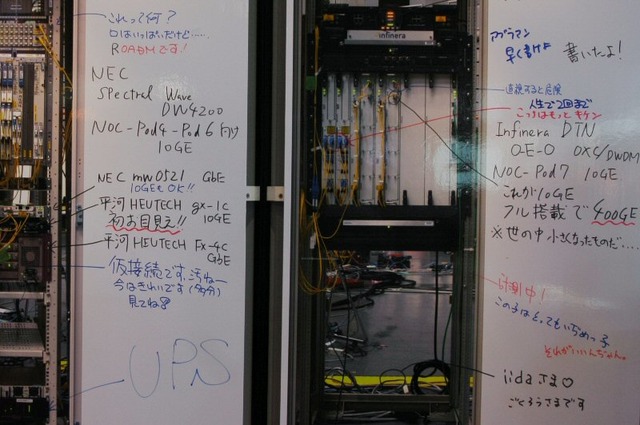 これって何?
口はいっぱいだけど......
ROADMです!
NEC
Spectral Wave
DW4200
NOC-Pod4-Pod6向け
10GE
NEC mw0521 GbE
10GEもOK!!
平河HEUTECH gx-1c
初お目見え!! 10GE
平河HEUTECH Fx-4c
GbE
仮接続です、汚ねー
今はきれいです(多分)
見てね
UPS
infinera
アプラマン
早く書けよ
書いたよ!
直視すると危険
人生で2回まで
こっちはもっとキケン
Infinera DTN
O-E-O OXC/DWDM
NOC-Pod7 10GE
これが10GE
フル搭載で400GE
※世の中小さくなったものだ....
計測中!
この子はとってもいぢめっ子
それがいいんぢゃん。
iidaさま♡
ごくろうさまです